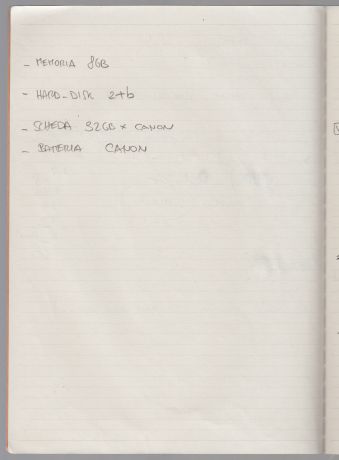 - MEMORIA 8GB
- HARD-DISK 2tb
- SCHEDA 32GB x CANON
- BATTERIA CANON